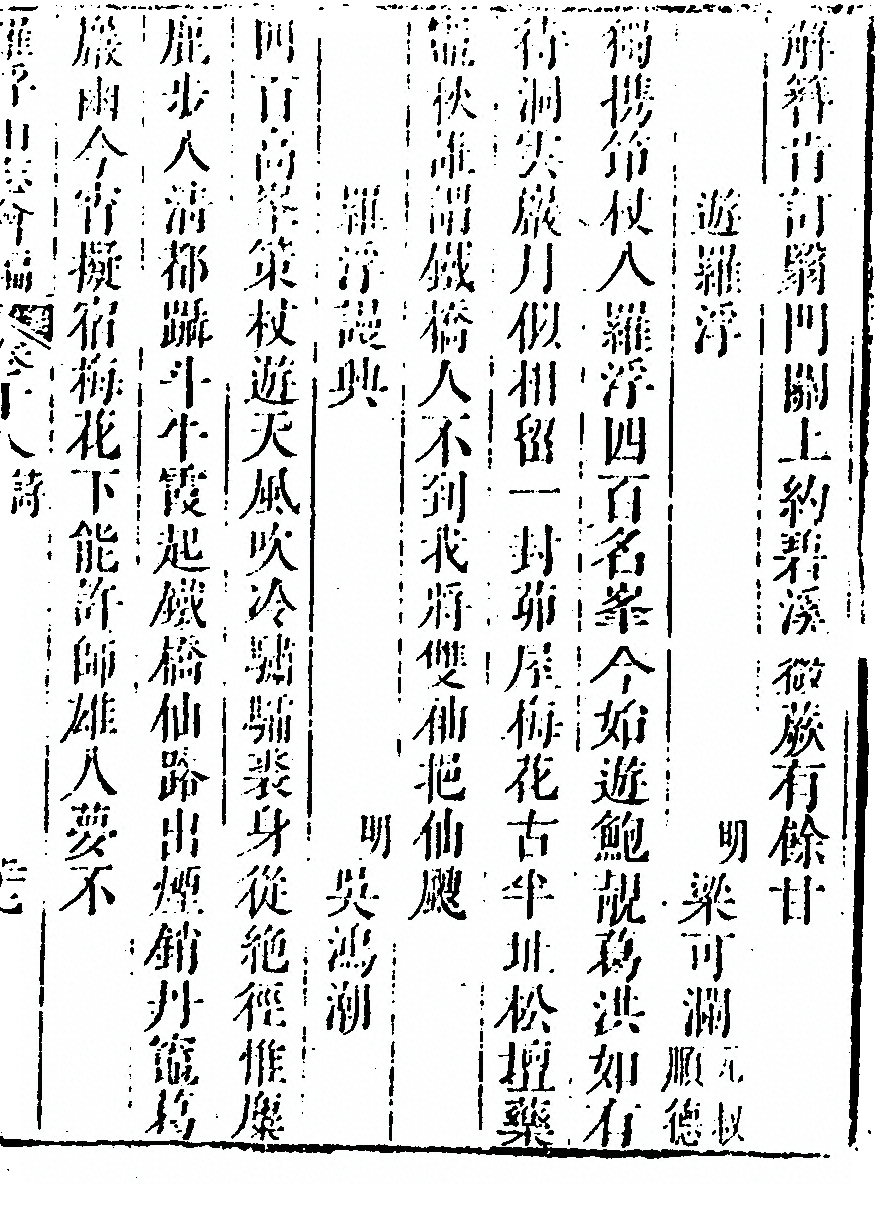 解簪肯訂鷄門關上約碧溪薇蕨有餘甘
遊羅浮
明梁可瀾元叔順德
獨携笻杖入羅浮四百名峯今始遊鮑靚葛洪如有
待洞天巖月似相留一封茆屋梅花古半址松壇藥
竈秋誰謂鐵橋人不到我將雙仙挹仙颷
羅浮謾興
明吳鴻潮
四百高峯策杖遊天風吹冷驌驦裘身從絶徑惟麋
鹿步入清都躡斗牛霞起鐵橋仙路出煙銷丹竈葛
巖幽今宵擬宿梅花下能許師雄入夢不
羅浮山志會編 卷十八 詩